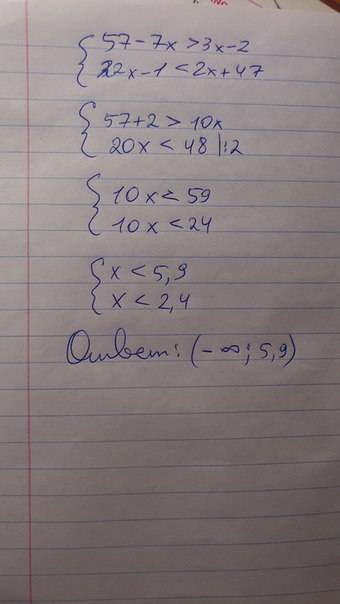 { 57-7x>3x-2
22x-1<2x+47
{ 57+2>10x
20x<48|:2
{ 10x<59
10x<24
{ x<5,9
x<2,4
Ответ: (-∞; 5,9)